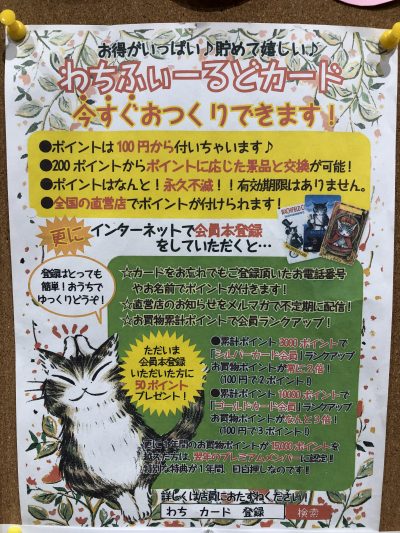 お得がいっぱい♪貯めて嬉しい♪
わちふぃーるどカード
今すぐおつくりできます！
●ポイントは100円から付いちゃいます♪
●200ポイントからポイントに応じた景品と交換が可能！
●ポイントはなんと！永久不滅！！有効期限はありません。
●全国の直営店でポイントが付けられます！
更に インターネットで会員本登録
をしていただくと…
登録はとっても
簡単！おうちで
ゆっくりどうぞ！
☆カードをお忘れでもご登録頂いたお電話番号
やお名前でポイントが付きます！
☆直営店のお知らせをメルマガで不定期に配信！
☆お買物累計ポイントで会員ランクアップ！
ただいま
会員本登録
いただいた方に
50ポイント
プレゼント！
●累計ポイント3000ポイントで
「シルバーカード会員」ランクアップ
お買物ポイントが常に2倍！
(100円で2ポイント！)
●累計ポイント10000ポイントで
「ゴールドカード会員」ランクアップ
お買物ポイントがなんと3倍！
(100円で3ポイント！)
更に1年間のお買物ポイントが15000ポイントを
越えた方は、翌年のプレミアムメンバーに認定！
特別な特典が1年間、目白押しなのです！
詳しくは店員におたずねください！
わち カード 登録 検索